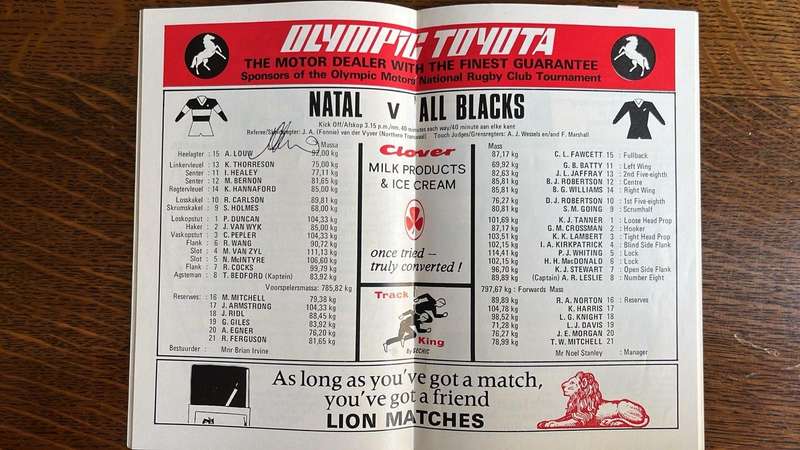 OLYMPIC TOYOTA
THE MOTOR DEALER WITH THE FINEST GUARANTEE
Sponsors of the Olympic Motors National Rugby Club Tournament
NATAL v ALL BLACKS
Kick Off/Afskop 3.15 p.m./nm. 40 minutes each way/40 minute aan elke kant
Referee/Skeidsregter: J. A. (Fonnie) van der Vyver (Northern Transvaal) Touch Judges/Grensregters: A. J. Wessels en/and F. Marshall
Massa
Heelagter: 15 A. LOUW 92,00 kg
Linkervleuel: 13 K. THORRESON 85,00 kg
Senter : 11 I. HEALEY 77,11 kg
Senter : 12 M. BERNON 81,65 kg
Regtervleuel : 14 K. HANNAFORD 85,00 kg
Losskakel : 10 R. CARLSON 89,81 kg
Skrumskakel : 9 S. HOLMES 68,00 kg
Loskopstut : 1 P. DUNCAN 104,33 kg
Haker : 2 J. VAN WYK 85,00 kg
Vaskopstut : 3 C. PEPLER 104,33 kg
Flank : 6 R. WANG 90,72 kg
Slot : 4 M. VAN ZYL 111,13 kg
Slot : 5 N. McINTYRE 106,60 kg
Flank : 7 R. COCKS 99,79 kg
Agsteman : 8 T. BEDFORD (Kaptein) 83,92 kg
Voorspelersmassa: 785,82 kg
Reserwes: 16 M. MITCHELL 79,38 kg
17 J. ARMSTRONG 104,33 kg
18 J. RIDL 88,45 kg
19 G. GILES 83,92 kg
20 A. EGNER 76,20 kg
21 R. FERGUSON 81,65 kg
Bestuurder : Mnr Brian Irvine
Clover
MILK PRODUCTS
& ICE CREAM
once tried –
truly converted !
Track
King
By BECHIC
Mass
87,17 kg C. L. FAWCETT 15 : Fullback
69,92 kg G. B. BATTY 11 : Left Wing
82,63 kg J. L. JAFFRAY 13 : 2nd Five-eighth
85,81 kg B. J. ROBERTSON 12 : Centre
85,81 kg B. G. WILLIAMS 14 : Right Wing
76,27 kg D. J. ROBERTSON 10 : 1st Five-eighth
80,81 kg S. M. GOING 9 : Scrumhalf
101,69 kg K. J. TANNER 1 : Loose Head Prop
87,17 kg G. M. CROSSMAN 2 : Hooker
103,51 kg K. K. LAMBERT 3 : Tight Head Prop
102,15 kg I. A. KIRKPATRICK 4 : Blind Side Flank
114,41 kg P. J. WHITING 5 : Lock
102,15 kg H. H. MacDONALD 6 : Lock
96,70 kg K. J. STEWART 7 : Open Side Flank
89,89 kg (Captain) A. R. LESLIE 8 : Number Eight
797,67 kg : Forwards Mass
89,89 kg R. A. NORTON 16 : Reserves
104,78 kg K. HARRIS 17
98,52 kg L. G. KNIGHT 18
71,28 kg L. J. DAVIS 19
76,27 kg J. E. MORGAN 20
78,99 kg T. W. MITCHELL 21
Mr Noel Stanley : Manager
As long as you've got a match,
you've got a friend
LION MATCHES